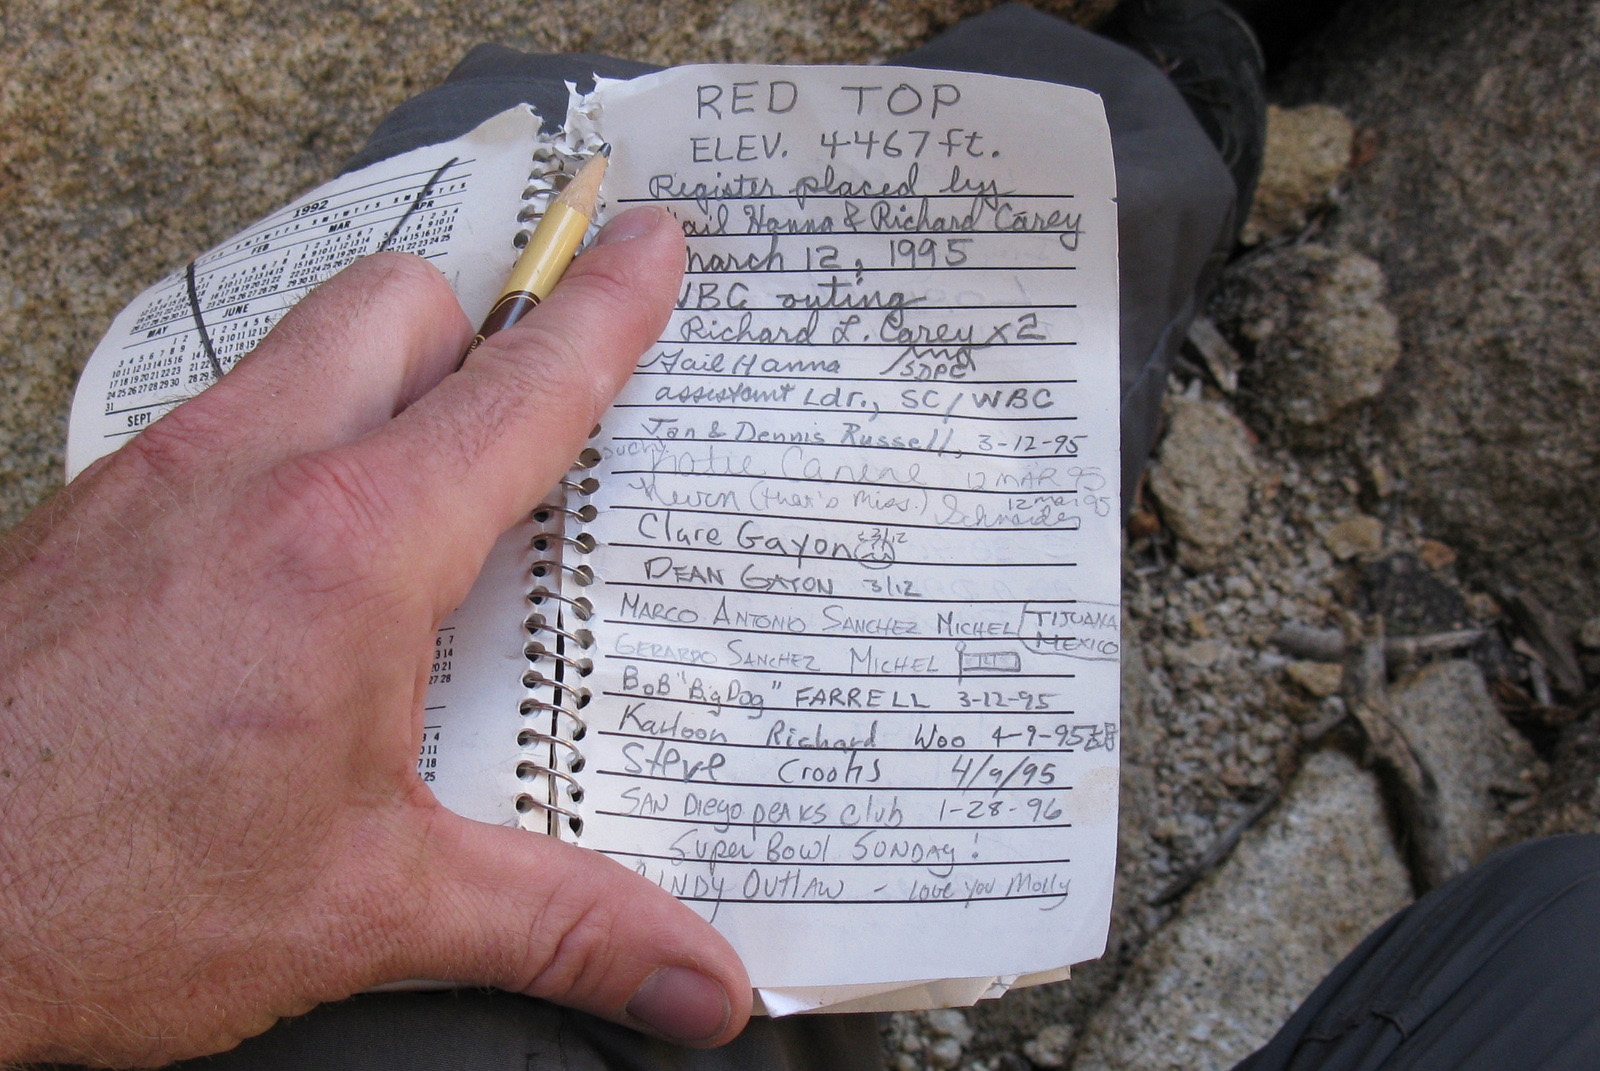 1992
FEB
MAR
APR
MAY
JUNE
SEPT
RED TOP
ELEV. 4467 ft.
Register placed by
ail Hanna & Richard Carey
arch 12, 1995
WBC outing
Richard L. Carey x2
Gail Hanna and SDPC
assistant Ldr., SC/WBC
Jan & Dennis Russell, 3-12-95
Katie 12 MAR 95
(that's Miss.) Schneider 12 Mar 95
Clare Gayon 3/12
DEAN GAYON 3/12
MARCO ANTONIO SANCHEZ MICHEL TIJUANA MEXICO
GERARDO SANCHEZ MICHEL
BOB "Big Dog" FARRELL 3-12-95
Kahoon Richard Woo 4-9-95
Steve Crooks 4/9/95
SAN Diego peaks club 1-28-96
Super Bowl SUNDAY!
INDY OUTLAW - Love you Molly